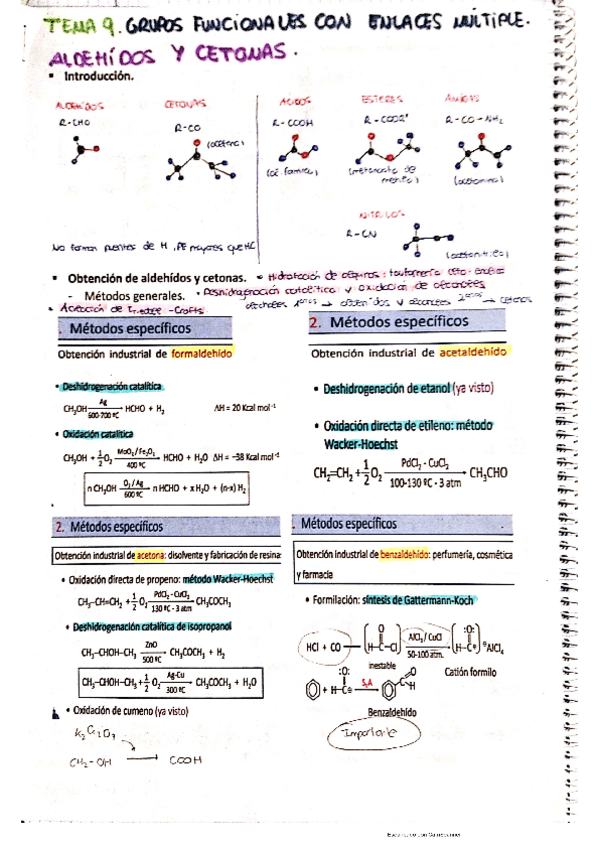 TEMA 9. GRUPOS FUNCIONALES CON ENLACES MÚLTIPLE.
ALDEHÍDOS Y CETONAS.
▪ Introducción.
ALDEHÍDOS CETONAS ÁCIDOS ESTERES AMIDAS
R-CHO R-CO R-COOH R-COOR' R-CO-NH₂
(acetona)
(ác. fórmico) (metanoato de metilo) (acetamida)
NITRILOS
R-CN
(acetonitrilo)
No forman puentes de H, PE mayores que HC
▪ Obtención de aldehídos y cetonas. • Hidratación de alquinos: tautomería ceto-enólica
- Métodos generales. • Deshidrogenación catalítica y oxidación de alcoholes
• Acilación de Friedel-Crafts alcoholes 1arios → aldehídos y alcoholes 2arios → cetonas
. Métodos específicos
Obtención industrial de formaldehído
• Deshidrogenación catalítica
CH₃OH Ag 600-700 ºC HCHO + H₂ ΔH = 20 Kcal mol⁻¹
• Oxidación catalítica
CH₃OH + 1/2 O₂ MoO₃ / Fe₂O₃ 400 ºC HCHO + H₂O ΔH = −38 Kcal mol⁻¹
n CH₃OH O₂ / Ag 600 ºC n HCHO + x H₂O + (n-x) H₂
2. Métodos específicos
Obtención industrial de acetaldehído
• Deshidrogenación de etanol (ya visto)
• Oxidación directa de etileno: método
Wacker-Hoechst
CH₂=CH₂ + 1/2 O₂ PdCl₂ - CuCl₂ 100-130 ºC - 3 atm CH₃CHO
2. Métodos específicos
Obtención industrial de acetona: disolvente y fabricación de resina
• Oxidación directa de propeno: método Wacker-Hoechst
CH₃–CH=CH₂ + 1/2 O₂ PdCl₂ - CuCl₂ 130 ºC - 3 atm CH₃COCH₃
• Deshidrogenación catalítica de isopropanol
CH₃–CHOH–CH₃ ZnO 500 ºC CH₃COCH₃ + H₂
CH₃–CHOH–CH₃ + 1/2 O₂ Ag-Cu 300 ºC CH₃COCH₃ + H₂O
• Oxidación de cumeno (ya visto)
K₂Cr₂O₇
CH₂-OH → COOH
. Métodos específicos
Obtención industrial de benzaldehído: perfumería, cosmética
y farmacia
• Formilación: síntesis de Gattermann-Koch
HCl + CO H–C–Cl O AlCl₃ / CuCl 50-100 atm. :O: H–C ⊖AlCl₄
inestable Catión formilo
:O: + H–C⊕ SEA O C H
Benzaldehído
Importante
Escaneado con CamScanner